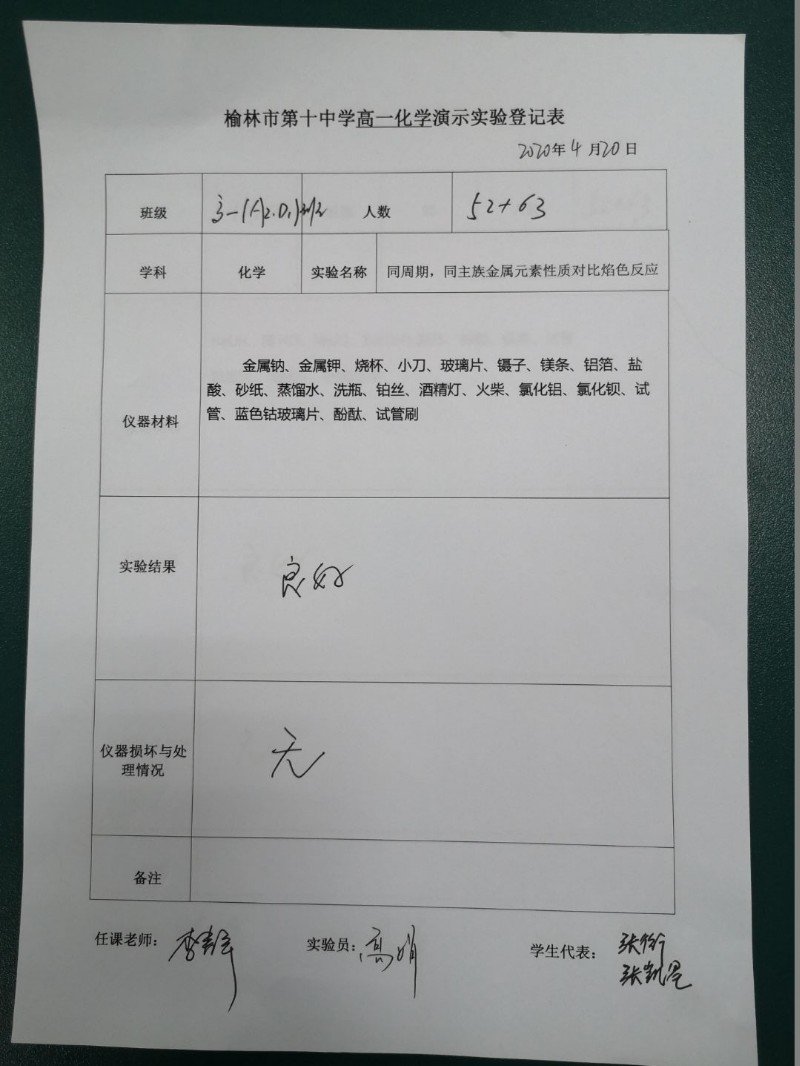 榆林市第十中学高一化学演示实验登记表
2020年4月20日
班级 高一(A2.D1)班 人数 52+63
学科 化学 实验名称 同周期，同主族金属元素性质对比焰色反应
仪器材料
金属钠、金属钾、烧杯、小刀、玻璃片、镊子、镁条、铝箔、盐
酸、砂纸、蒸馏水、洗瓶、铂丝、酒精灯、火柴、氯化铝、氯化钡、试
管、蓝色钴玻璃片、酚酞、试管刷
实验结果 良好
仪器损坏与处
理情况
无
备注
任课老师： 实验员：高娟 学生代表：